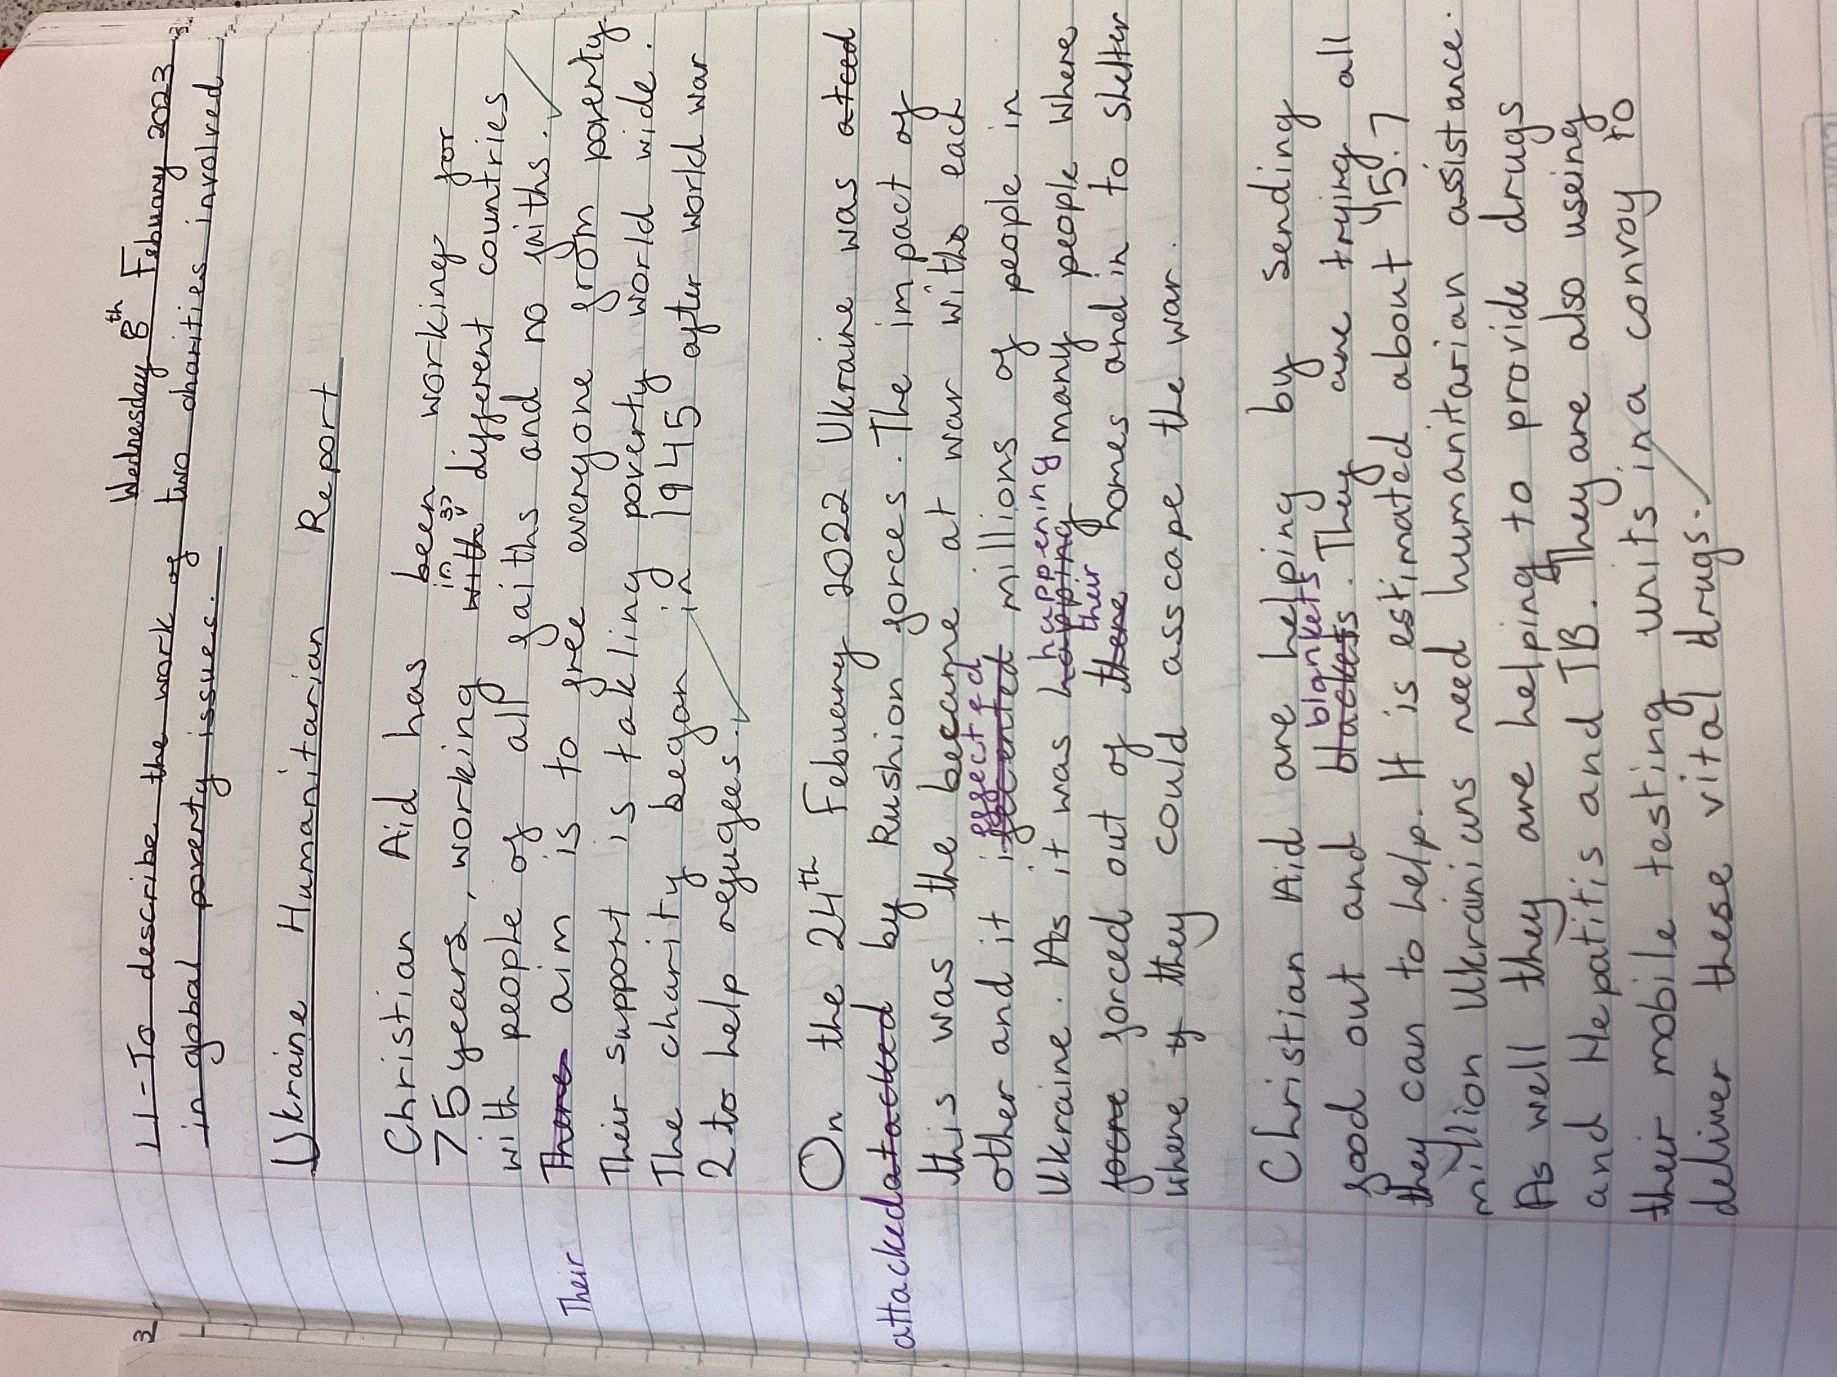 Wednesday 8th Febuary 2023
LI - To describe the work of two charities involved
in global poverty issues.
Ukraine Humanitarian Report
Christian Aid has been working for
75 years, working with in 37 different countries
with people of all faiths and no faiths.
Their There aim is to free everyone from poverty
Their support is takling poverty world wide.
The charity began in 1945 after world war
2 to help refugees.
On the 24th Febuary 2022 Ukraine was
attacked atatacted by Rushion forces. The impact of
this was the became at war with each
other and it effected millions of people in
Ukraine. As it was happening happing many people where
forced out of their there homes and in to shelter
where they could asscape the war.
Christian Aid are helping by sending
food out and blankets blackets. They are trying all
they can to help. It is estimated about 45.7
million Ukrainians need humanitarian assistance.
As well they are helping to provide drugs
and Hepatitis and TB. They are also useing
their mobile testing units in a convoy to
deliver these vital drugs.